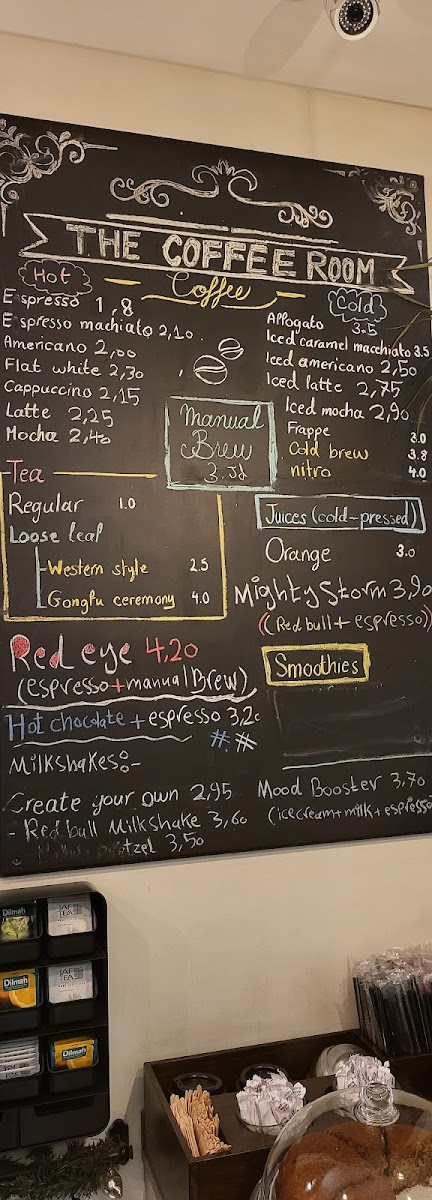 THE COFFEE ROOM
Coffee
Hot
Espresso 1,8
Espresso machiato 2,10.
Americano 2,00
Flat white 2,30
Cappuccino 2,15
Latte 2,25
Mocha 2,40
Manual
Brew
3.Jd
Cold
Affogato 3.5
Iced caramel macchiato 3.5
Iced americano 2,50
Iced latte 2,75
Iced mocha 2,90
Frappe 3.0
Cold brew 3.8
nitro 4.0
Tea
Regular 1.0
Loose leaf
Western style 2.5
Gongfu ceremony 4.0
Juices (cold-pressed)
Orange 3.0
Mighty Storm 3,90
(Red bull + espresso)
Smoothies
Red eye 4,20
(espresso + manual Brew)
Hot chocolate + espresso 3,20
# #
Milkshakes:-
Create your own 2,95
- Red bull Milkshake 3,60
3,50
Mood Booster 3,70
(icecream+milk+espresso
Dilmah
Dilmah
Dilmah
JAF
TEA
JAF
TEA